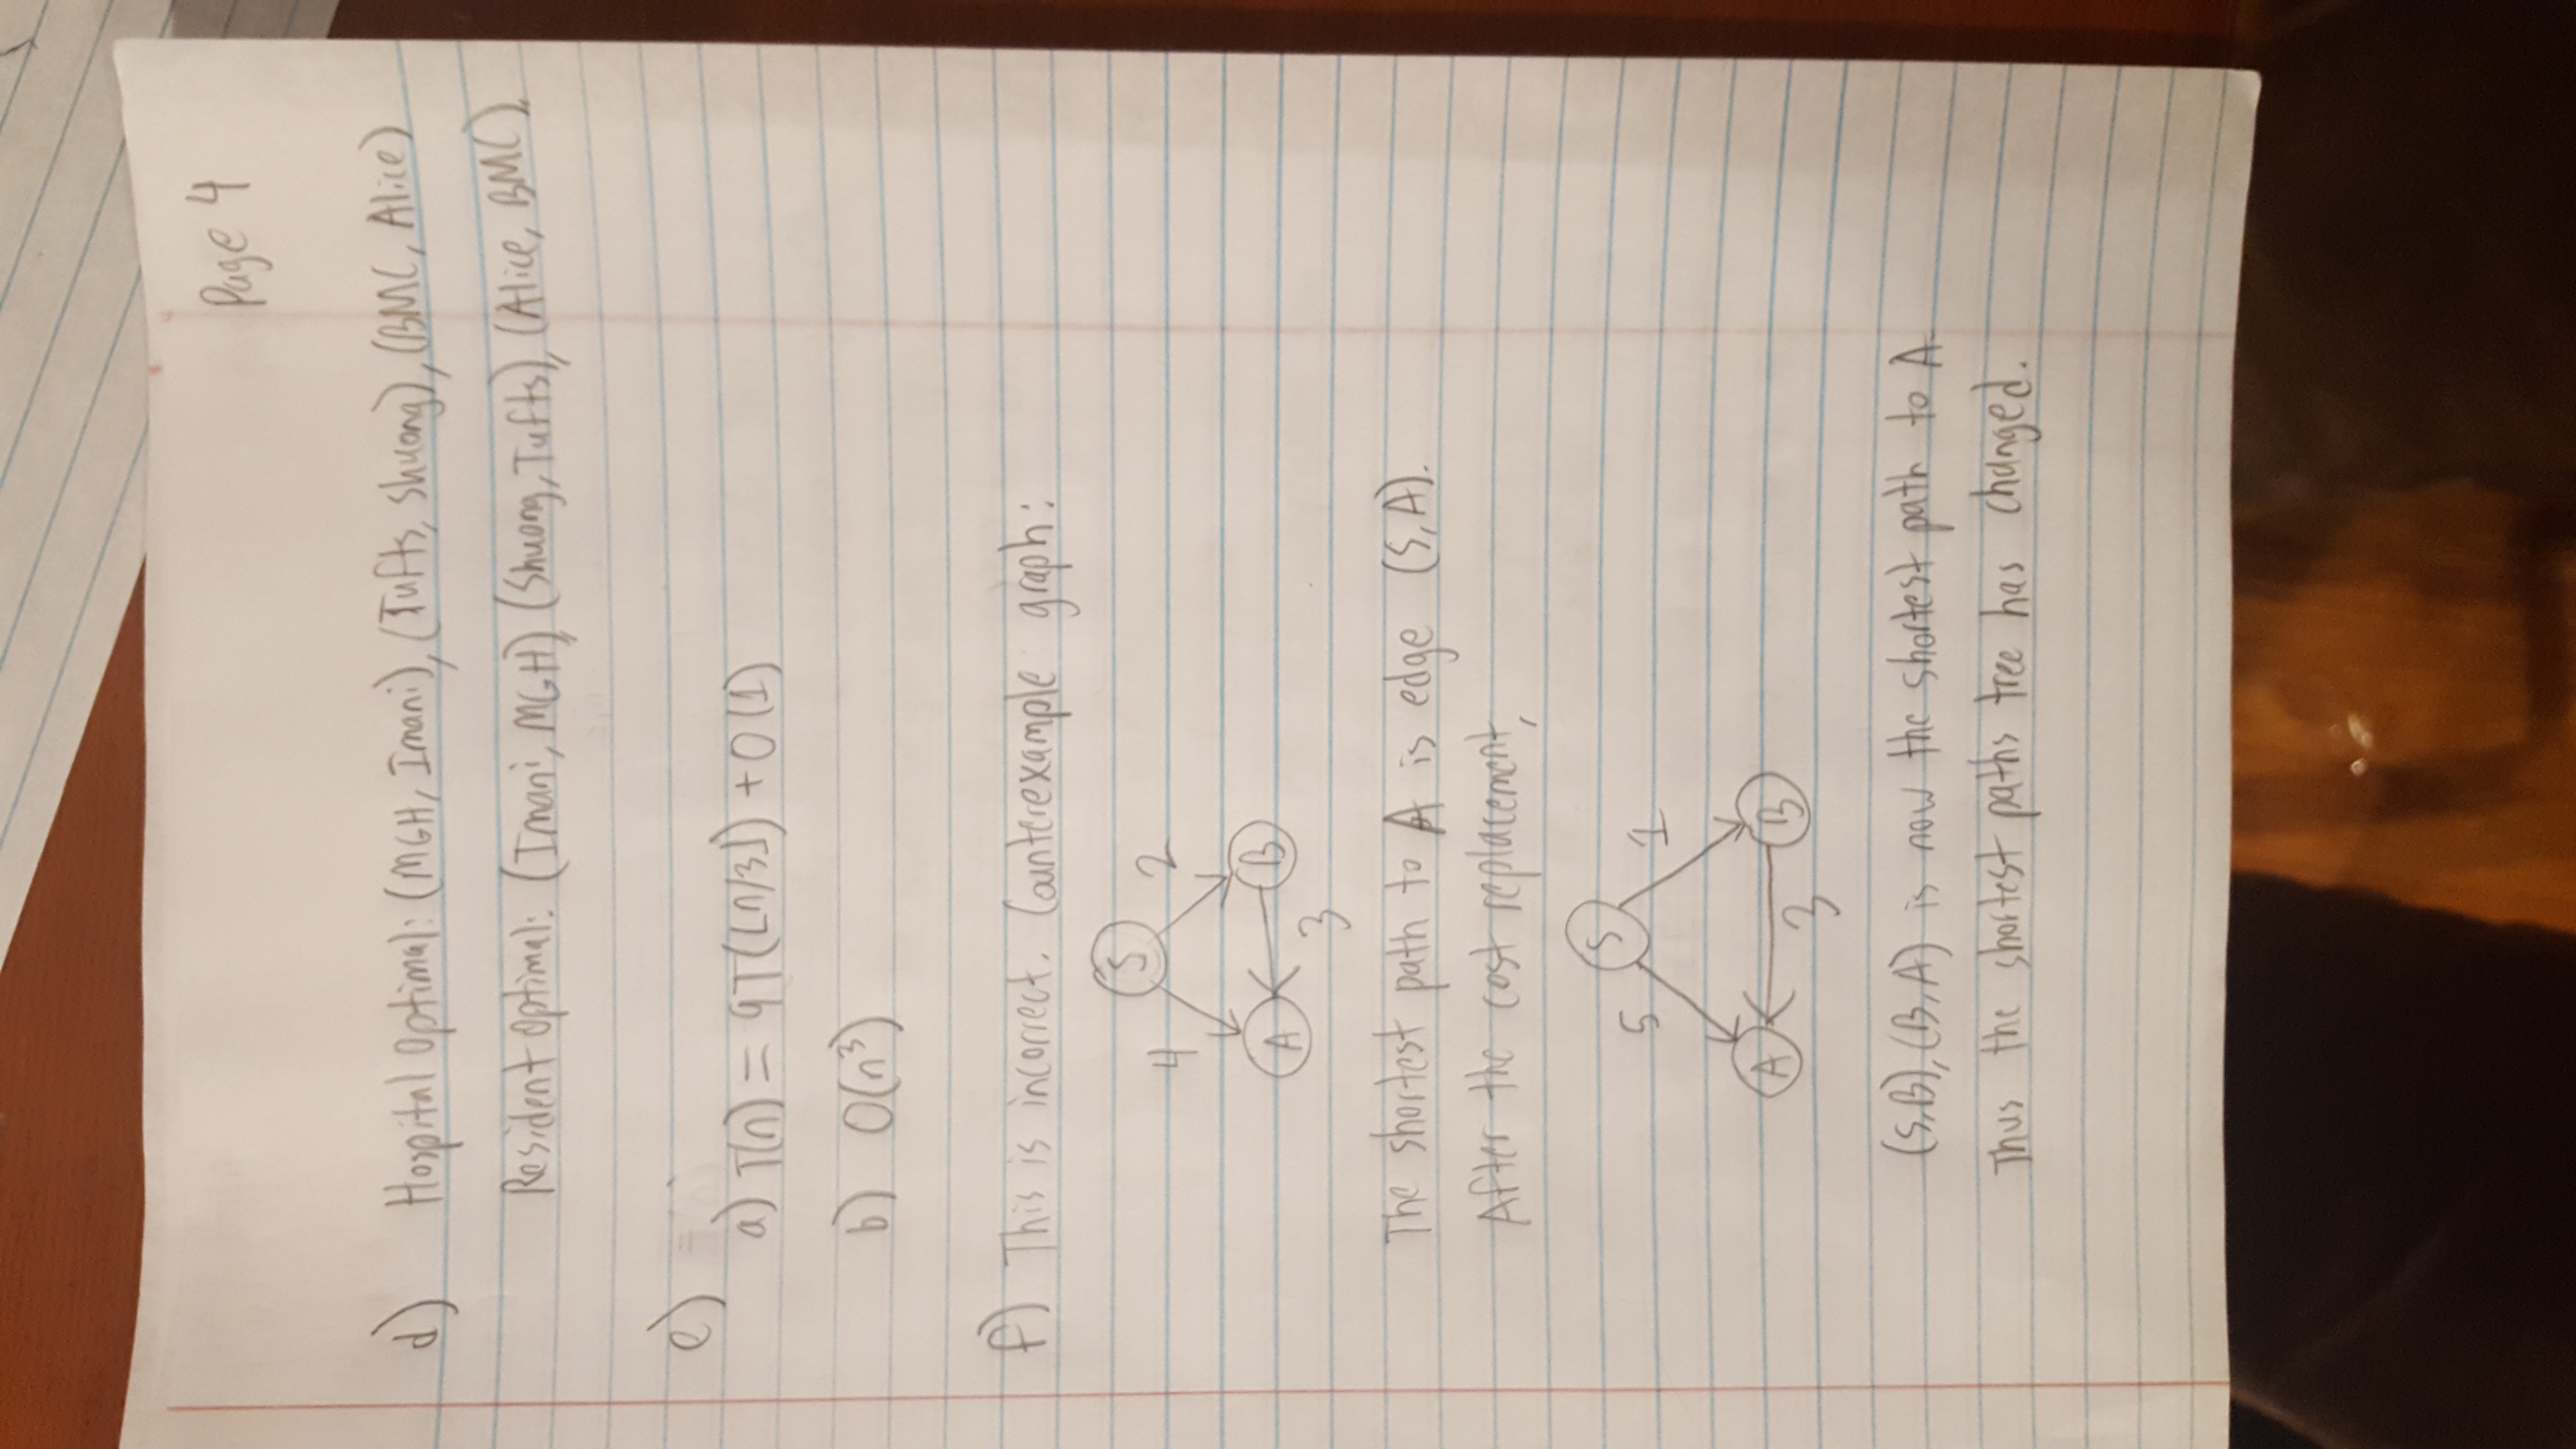 Page 4
d) Hospital Optimal: (MGH, Imani), (Tufts, Shuong), (BMC, Alice)
Resident Optimal: (Imani, MGH), (Shuong, Tufts), (Alice, BMC).
e)
a) T(n) = 9T(⌊n/3⌋) + O(1)
b) O(n³)
f) This is incorrect. Counterexample graph:
S
4 2
A B
3
The shortest path to A is edge (S,A).
After the cost replacement,
S
5 1
A B
3
(S,B), (B,A) is now the shortest path to A.
Thus the shortest paths tree has changed.